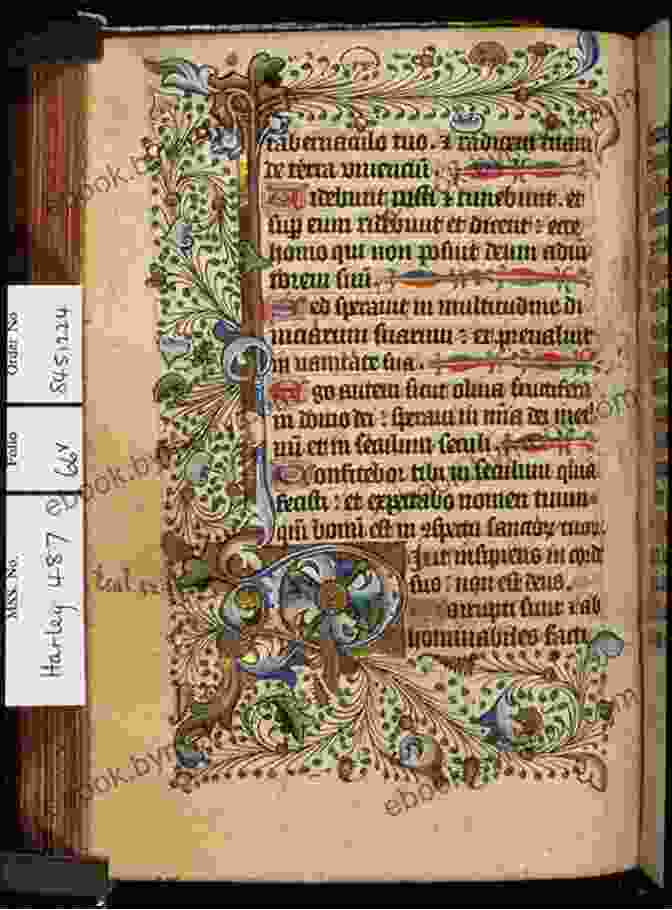 tabernaculo tuo. ⁊ radicem tuam
de terra viuenciū.
Videbunt iusti ⁊ timebunt. et
sup eum ridebunt et dicent : ecce
homo qui non posuit deum adiu
torem suū.
Sed sperauit in multitudine di
uiciarum suarum : et preualuit
in uanitate sua.
Ego autem sicut oliua fructifera
in domo dei : speraui in mīa dei
nū et in seculum seculi.
Confitebor tibi in seculum quia
fecisti : et expectabo nomen tuum
qm̄ bonū est in ɔspectu sanctoꝝ tuoꝝ.
Dixit insipiens in corde
suo : non est deus.
Corrupti sunt ⁊ ab
hominabiles facti
Order No
8451224
Folio
66v
MSS. No.
Harley 487